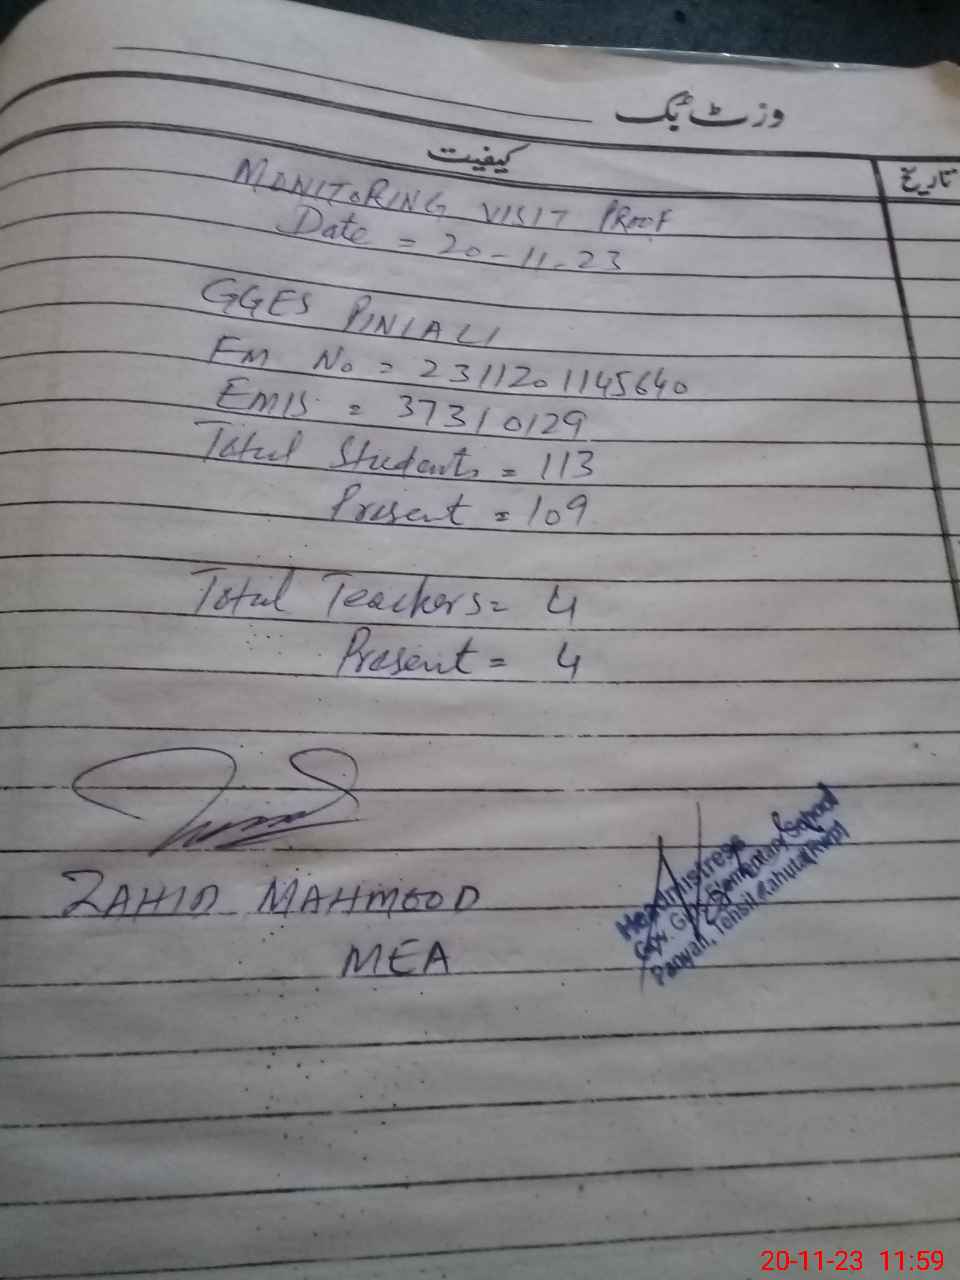 وزٹ بُک
کیفیت
تاریخ
MONITORING VISIT PROOF
Date = 20-11-23
GGES PINIALI
EM No = 2311201145640
EMIS = 37310129
Total Students = 113
Present = 109
Total Teachers = 4
Present = 4
ZAHID MAHMOOD
MEA
Headmistress
Govt. Girls Elementary School
Tehsil Kahuta (Rwp)
20-11-23 11:59